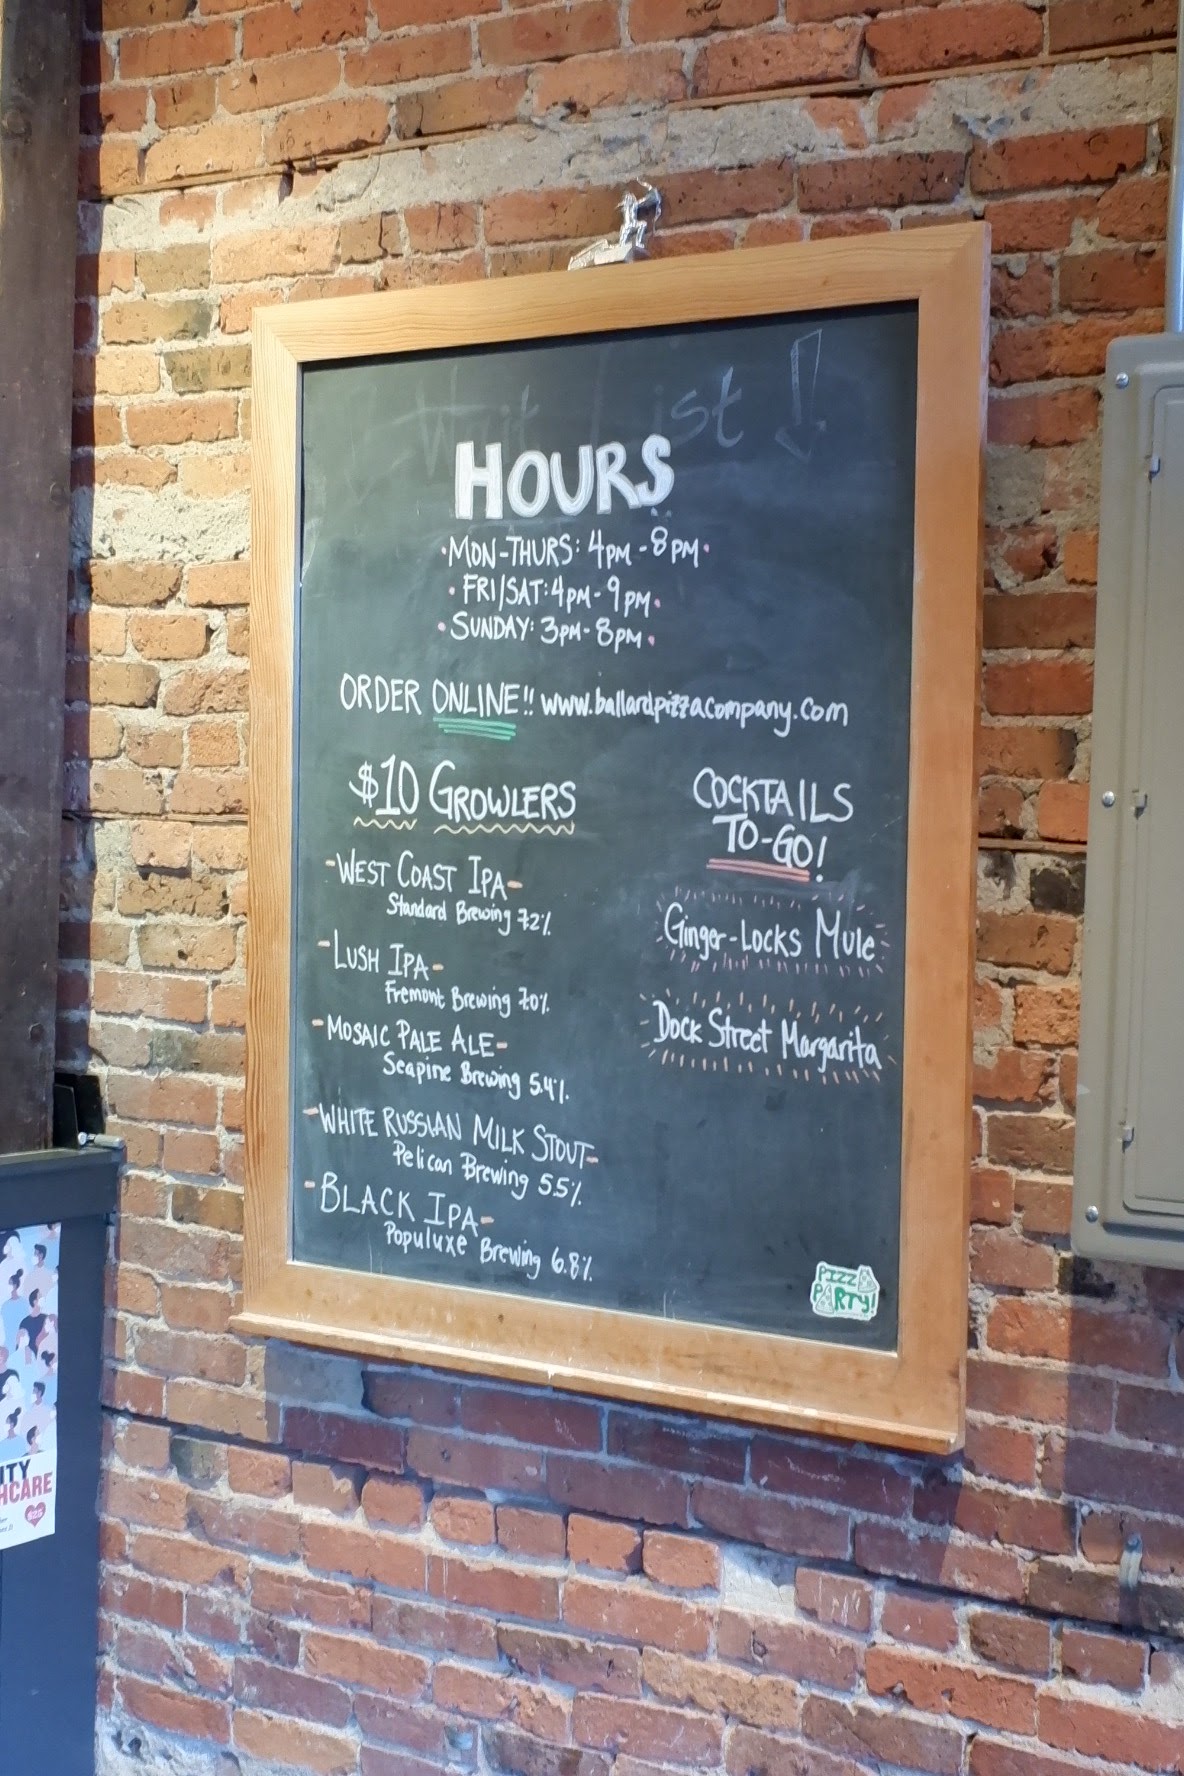 Wait List
HOURS
•MON-THURS: 4PM-8PM•
•FRI/SAT: 4PM-9PM•
•SUNDAY: 3PM-8PM•
ORDER ONLINE!! www.ballardpizzacompany.com
$10 GROWLERS
-WEST COAST IPA-
Standard Brewing 7.2%
-LUSH IPA-
Fremont Brewing 7.0%
-MOSAIC PALE ALE-
Seapine Brewing 5.4%
-WHITE RUSSIAN MILK STOUT-
Pelican Brewing 5.5%
-BLACK IPA-
Populuxe Brewing 6.8%
COCKTAILS
TO-GO!
Ginger-Locks Mule
Dock Street Margarita
PIZZA
PARTY!
ITY
HCARE
$25